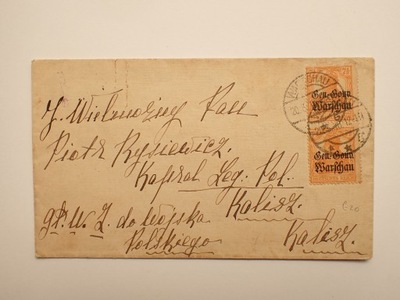 WARSCHAU
Gen.-Gouv.
Warschau
Gen.-Gouv.
Warschau
J. Wielmożny Pan
Piotr Rysiewicz.
Kapral Leg. Pol.
Kalisz.
do wojska
Polskiego
Kalisz.